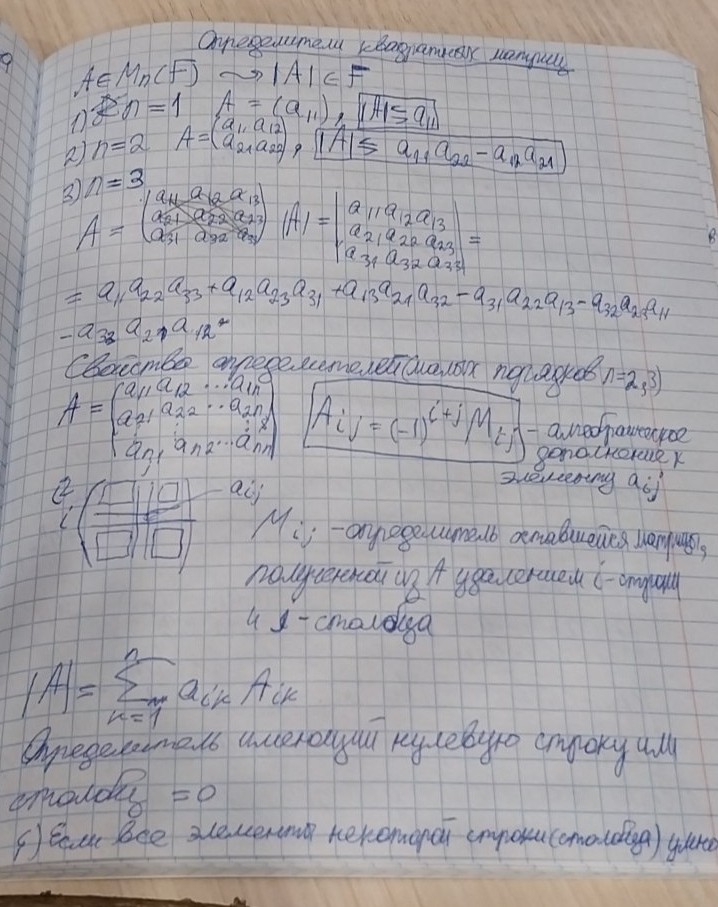 Определители квадратных матриц
A ∈ Mn(F) ⟿ |A| ∈ F
1) n = 1 A = (a₁₁), |A| ≤ a₁₁
2) n = 2 A = (a₁₁ a₁₂
a₂₁ a₂₂), |A| ≤ a₁₁a₂₂ - a₁₂a₂₁
3) n = 3
A = (a₁₁ a₁₂ a₁₃
a₂₁ a₂₂ a₂₃
a₃₁ a₃₂ a₃₃) |A| = |a₁₁ a₁₂ a₁₃
a₂₁ a₂₂ a₂₃
a₃₁ a₃₂ a₃₃| =
= a₁₁a₂₂a₃₃ + a₁₂a₂₃a₃₁ + a₁₃a₂₁a₃₂ - a₃₁a₂₂a₁₃ - a₃₂a₂₃a₁₁
- a₃₃a₂₁a₁₂
Свойства определителей (малых порядков n=2,3)
A = (a₁₁ a₁₂ ... a₁n
a₂₁ a₂₂ ... a₂n
an₁ an₂ ... ann) Aij = (-1)^{i+j} Mij - алгебраическое
дополнение к
элементу aij
j
i aij
Mij - определитель оставшейся матрицы,
полученной из A удалением i-строки
и j-столбца
|A| = ∑_{k=1}^{n} aik Aik
Определитель имеющий нулевую строку или
столбец = 0
Если все элементы некоторой строки (столбца)